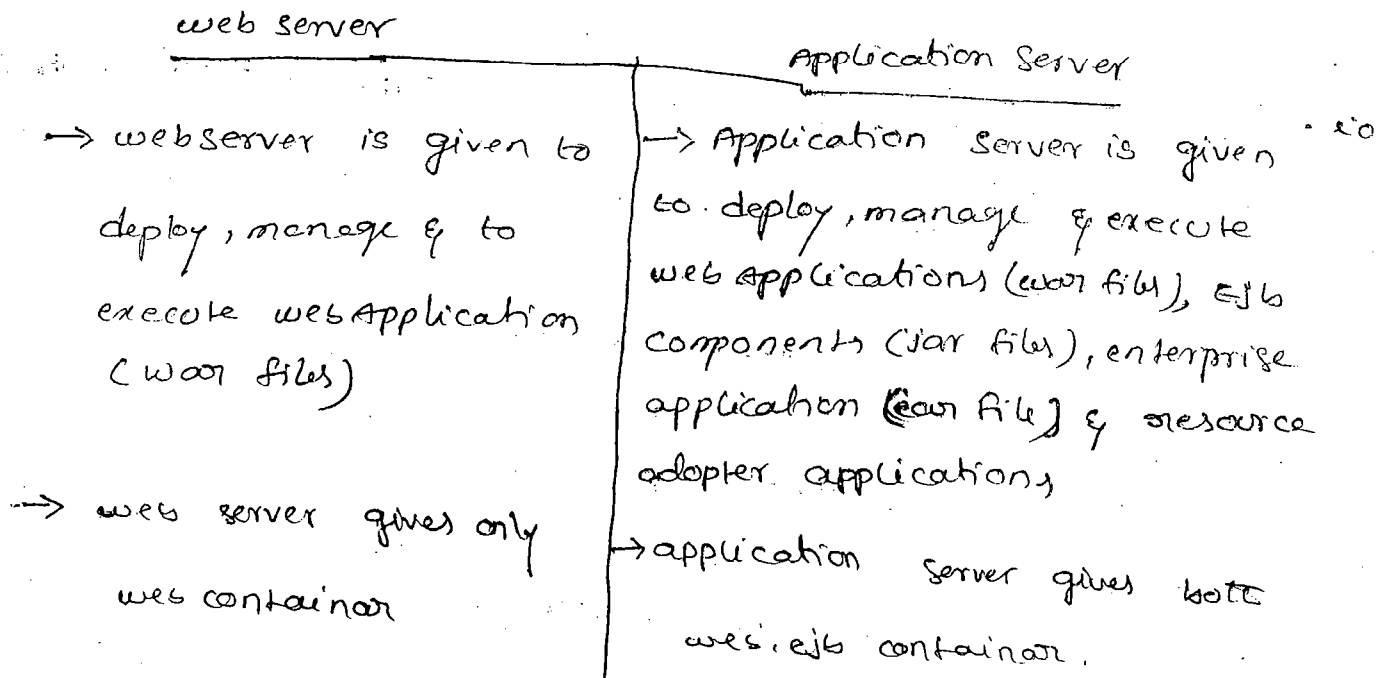 web server
Application Server
→ webserver is given to
deploy, manage & to
execute webApplication
(war files)
→ web server gives only
web containar
→ Application Server is given
to deploy, manage & execute
web Applications (war files), EJb
components (jar files), enterprise
application (ear file) & resource
adopter applications
→ application server gives both
web, ejb containar.